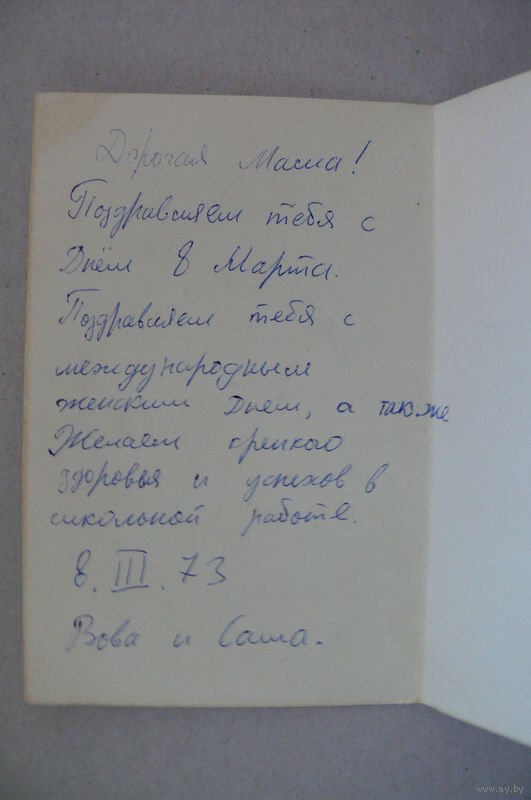 Дорогая Мама!
Поздравляем тебя с
Днём 8 Марта.
Поздравляем тебя с
международным
женским Днем, а также
Желаем крепкао
здоровья и успехов в
школьной работе.
8.III.73
Вова и Саша.
www.ay.by